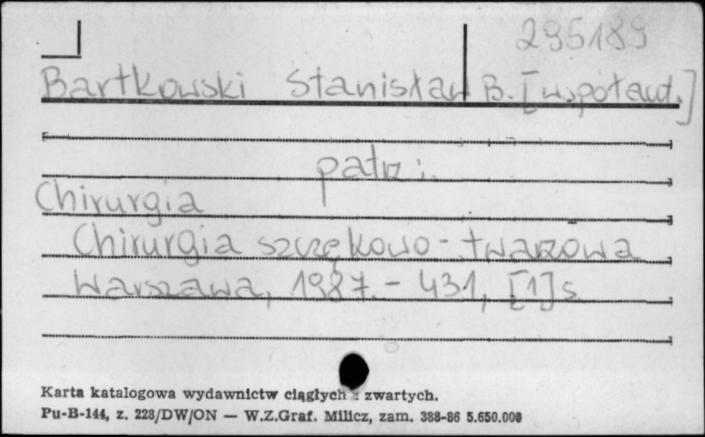 295189
Bartkowski Stanisław B. [współaut.]
patrz:
Chirurgia
Chirurgia szczękowo-twarzowa
Warszawa, 1987. - 431, [1] s
Karta katalogowa wydawnictw ciągłych i zwartych.
Pu-B-144, z. 228/DW/ON — W.Z.Graf. Milicz, zam. 388-86 5.650.000